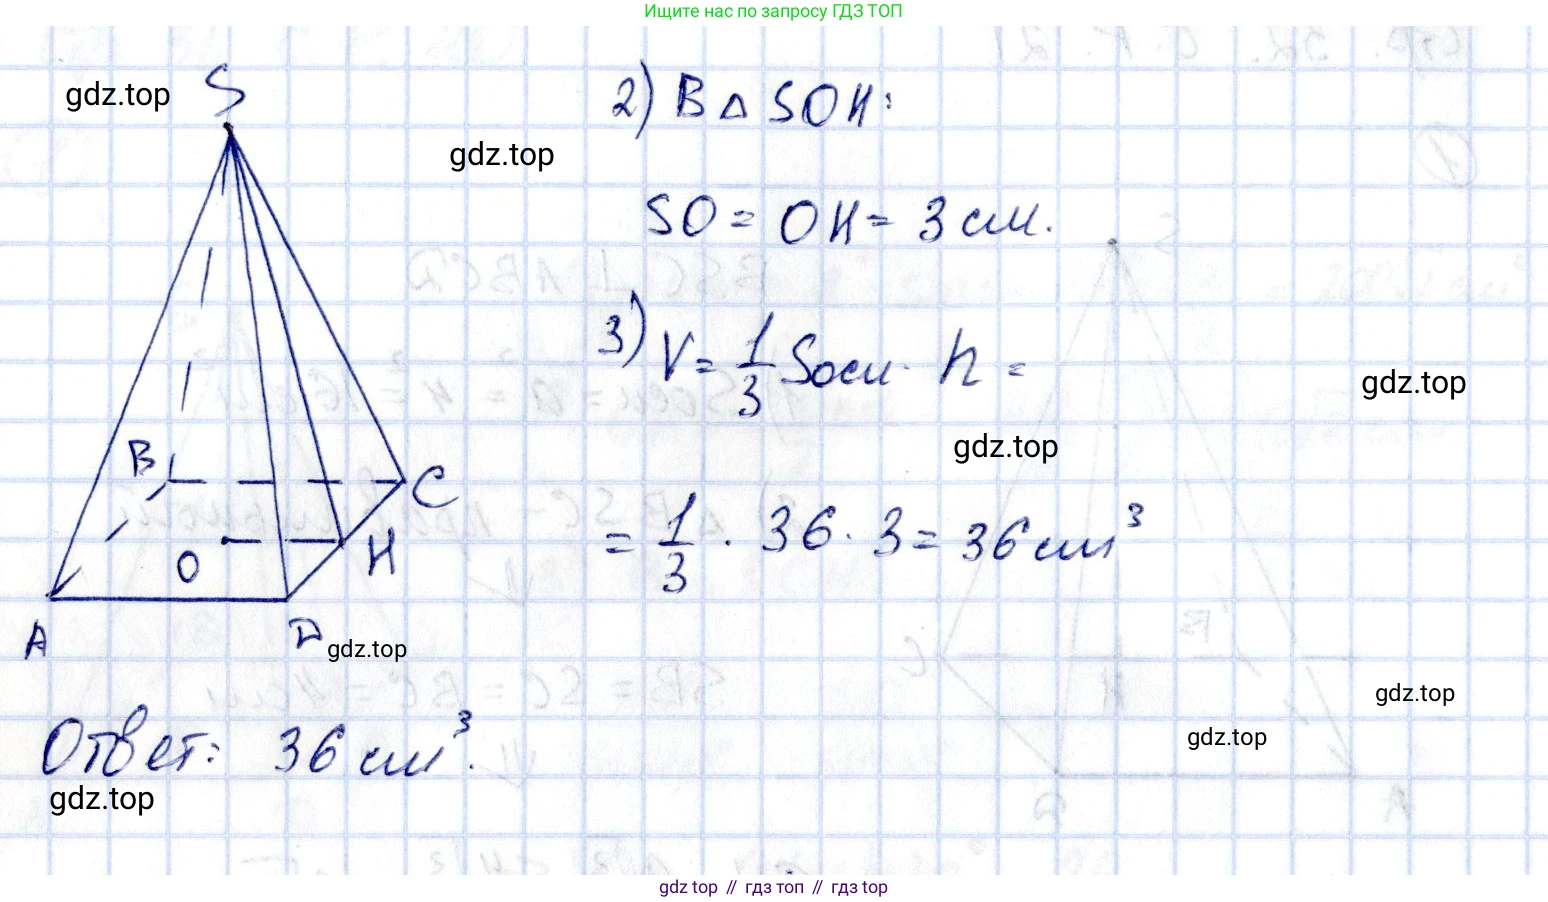 Ищите нас по запросу ГДЗ ТОП
gdz.top
S
gdz.top
2) В △ SOH:
SO = OH = 3 см.
3) V = 1/3 Sосн · h =
gdz.top
gdz.top
= 1/3 · 36 · 3 = 36 см³
B
C
O
H
A
D
gdz.top
gdz.top
gdz.top
Ответ: 36 см³.
gdz.top
gdz top // гдз топ // гдз top